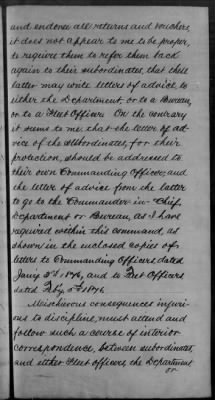 and endorse all returns and vouchers,
it does not appear to me to be proper,
to require them to refer them back
again to their subordinates, that these
latter may write letters of advice, to
either the Department, or to a Bureau,
or to a Fleet Officer. On the contrary
it seems to me, that the letter of ad-
vice of the subordinates, for their
protection, should be addressed to
their own Commanding Officer, and
the letter of advice from the latter
to go to the Commander-in-Chief,
Department or Bureau, as I have
required within this command, as
shown in the enclosed copies of
letters to Commanding Officers dated
Jan'y 3rd 1876, and to Fleet Officers
dated Feb'y 5th 1876.
Mischievous consequences injuri-
ous to discipline, must attend and
follow such a course of interior
correspondence, between subordinates,
and either Fleet officers, the Department
or